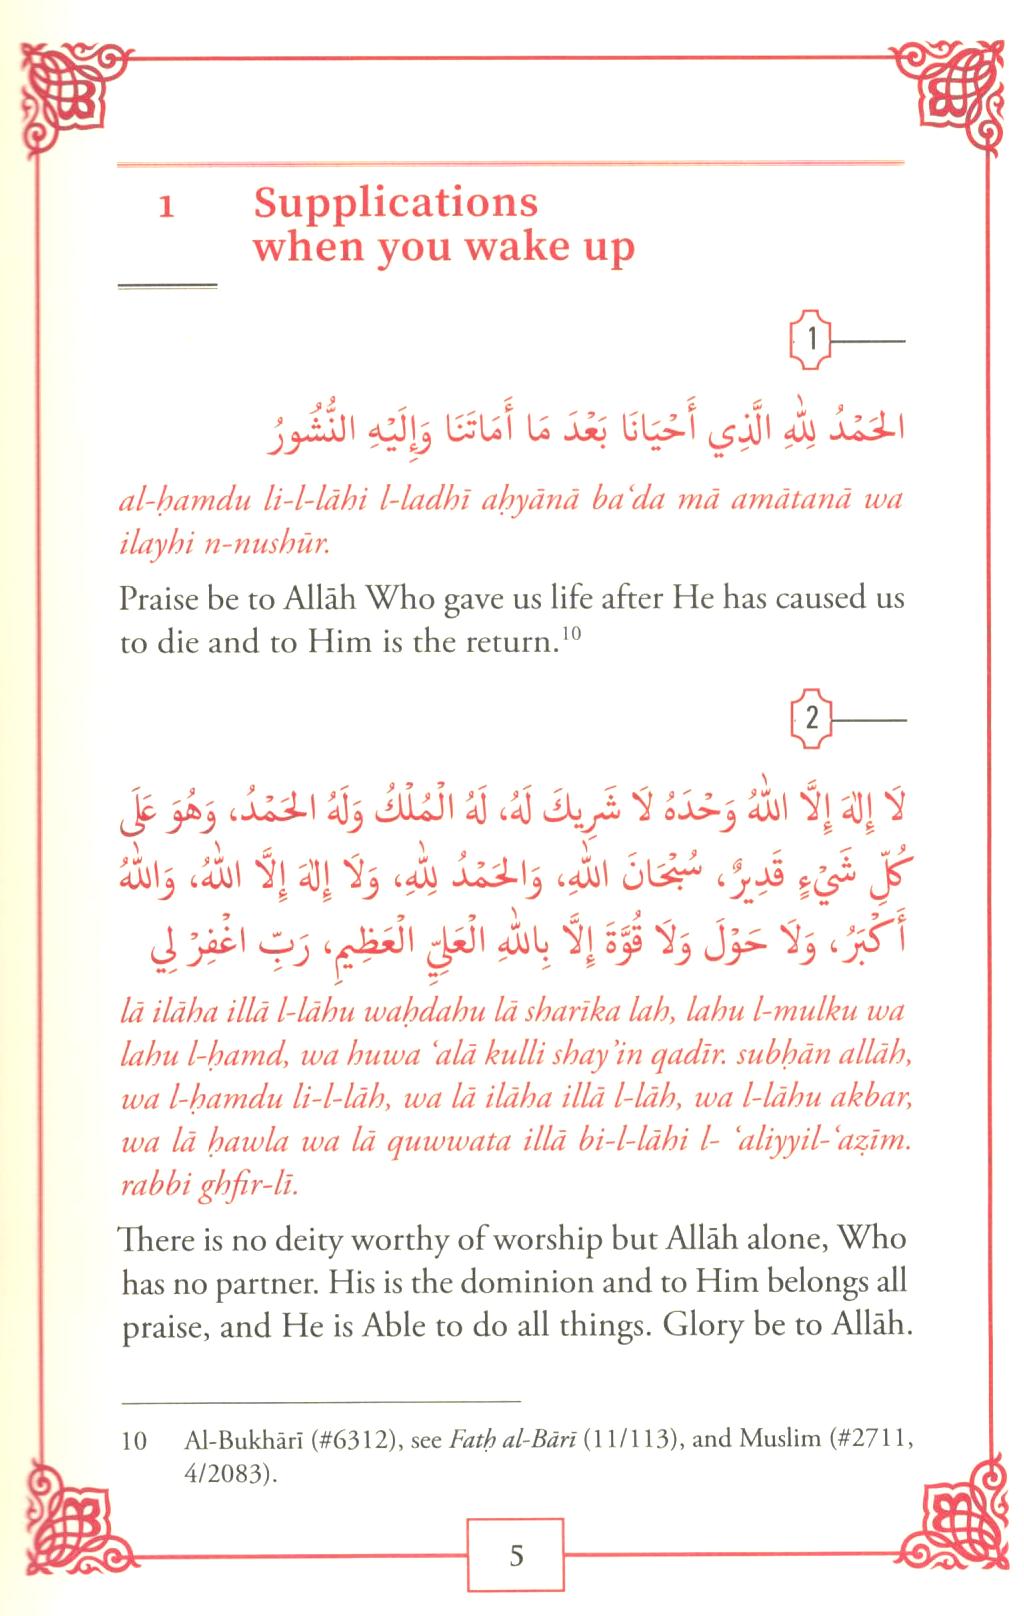 1 Supplications
when you wake up
1
الحَمْدُ لِلَّهِ الَّذِي أَحْيَانَا بَعْدَ مَا أَمَاتَنَا وَإِلَيْهِ النُّشُورُ
al-ḥamdu li-l-lāhi l-ladhī aḥyānā ba‘da mā amātanā wa
ilayhi n-nushūr.
Praise be to Allāh Who gave us life after He has caused us
to die and to Him is the return.¹⁰
2
لَا إِلَهَ إِلَّا اللَّهُ وَحْدَهُ لَا شَرِيكَ لَهُ، لَهُ الْمُلْكُ وَلَهُ الحَمْدُ، وَهُوَ عَلَى
كُلِّ شَيْءٍ قَدِيرٌ، سُبْحَانَ اللَّهِ، وَالحَمْدُ لِلَّهِ، وَلَا إِلَهَ إِلَّا اللَّهُ، وَاللَّهُ
أَكْبَرُ، وَلَا حَوْلَ وَلَا قُوَّةَ إِلَّا بِاللَّهِ الْعَلِيِّ الْعَظِيمِ، رَبِّ اغْفِرْ لِي
lā ilāha illā l-lāhu waḥdahu lā sharīka lah, lahu l-mulku wa
lahu l-ḥamd, wa huwa ‘alā kulli shay’in qadīr. subḥān allāh,
wa l-ḥamdu li-l-lāh, wa lā ilāha illā l-lāh, wa l-lāhu akbar,
wa lā ḥawla wa lā quwwata illā bi-l-lāhi l- ‘aliyyil-‘aẓīm.
rabbi ghfir-lī.
There is no deity worthy of worship but Allāh alone, Who
has no partner. His is the dominion and to Him belongs all
praise, and He is Able to do all things. Glory be to Allāh.
10 Al-Bukhārī (#6312), see Fatḥ al-Bārī (11/113), and Muslim (#2711,
4/2083).
5